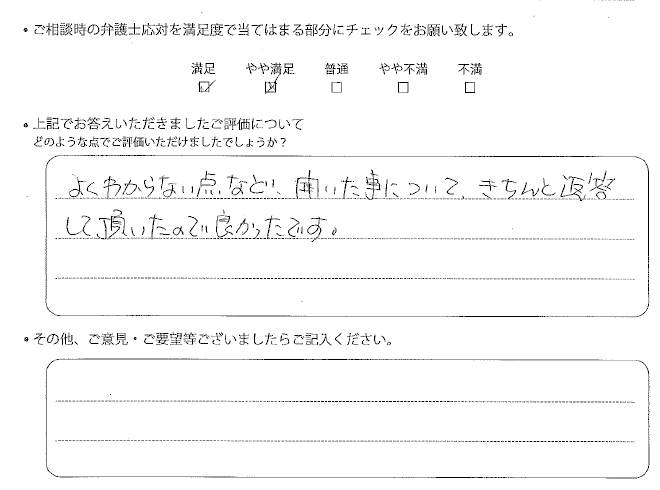 • ご相談時の弁護士応対を満足度で当てはまる部分にチェックをお願い致します。
満足 やや満足 普通 やや不満 不満
☑ ☑ □ □ □
• 上記でお答えいただきましたご評価について
どのような点でご評価いただけましたでしょうか？
よくわからない点など、聞いた事について、きちんと返答
して頂いたので良かったです。
• その他、ご意見・ご要望等ございましたらご記入ください。